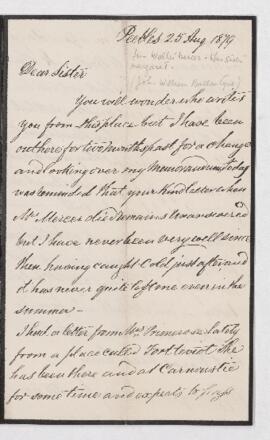 Peebles 25 Aug 1879
Dear Sister
You will wonder who writes
you from this place but I have been
out here for two months past for a change
and looking over my Memorandums today
was reminded that your kind letter when
Mr Mercer died remains Unanswered
but I have never been very well since
then having caught Cold just after, and
it has never quite left me even in the
Summer—
I had a letter from Mrs Primrose lately
from a place called Forteviot She
has been there and at Carnoustie
for some time and expects to